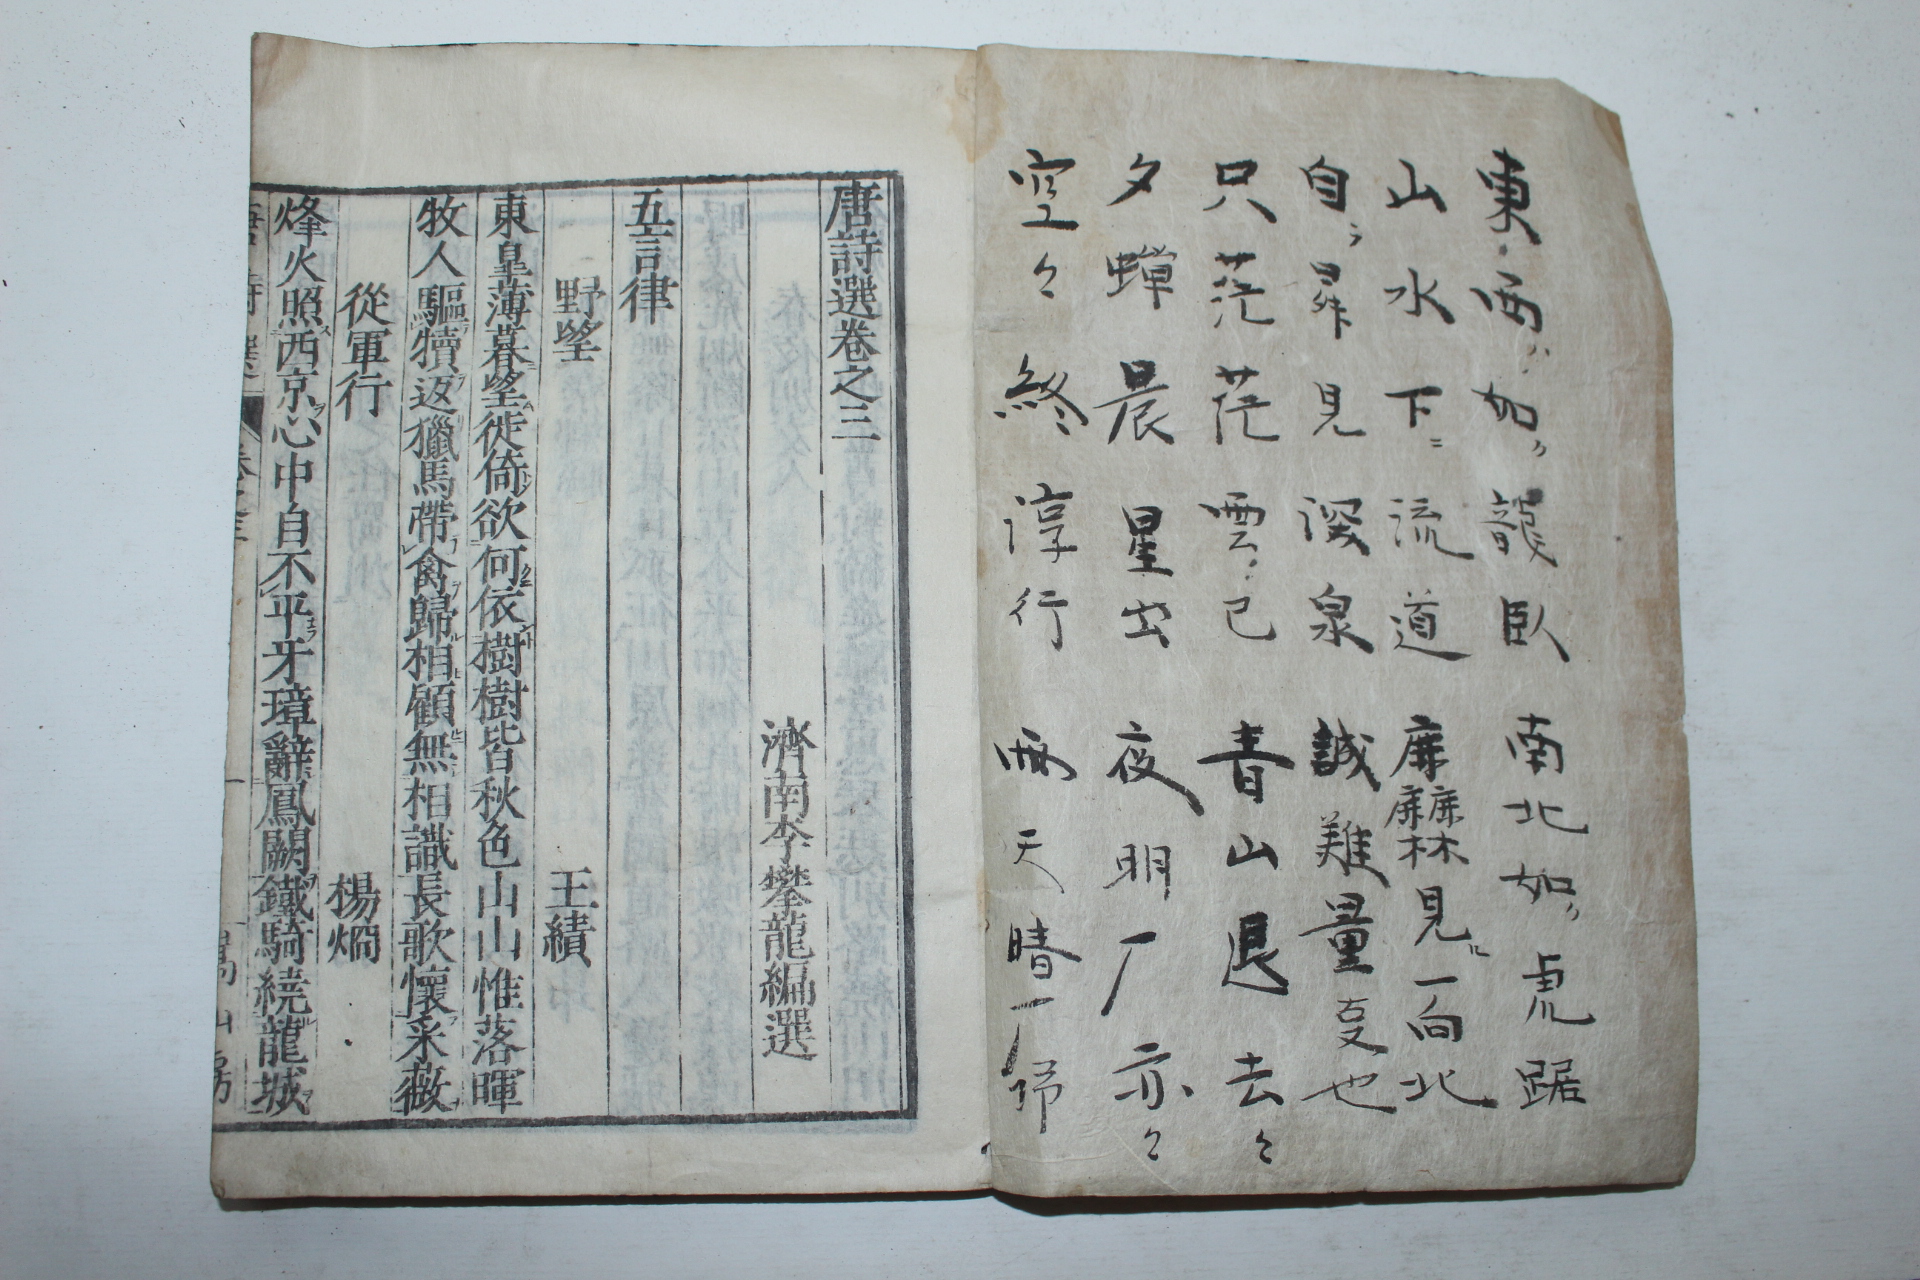 東西如龍臥南北如虎踞
山水下流道麻麻麻見一向北
自昇見深泉誠難量更也
只茫茫雲已青山退去々
夕蟬晨星出夜明厂亦々
空々終淳行両天晴
唐詩選卷之三
濟南李攀龍編選
五言律
野望 王績
東皐薄暮望徙倚欲何依樹樹皆秋色山山惟落暉
牧人驅犢返獵馬帶禽歸相顧無相識長歌懷采薇
從軍行 楊烱
烽火照西京心中自不平牙璋辭鳳闕鐵騎繞龍城
唐詩選 卷之三 一 嵩山房